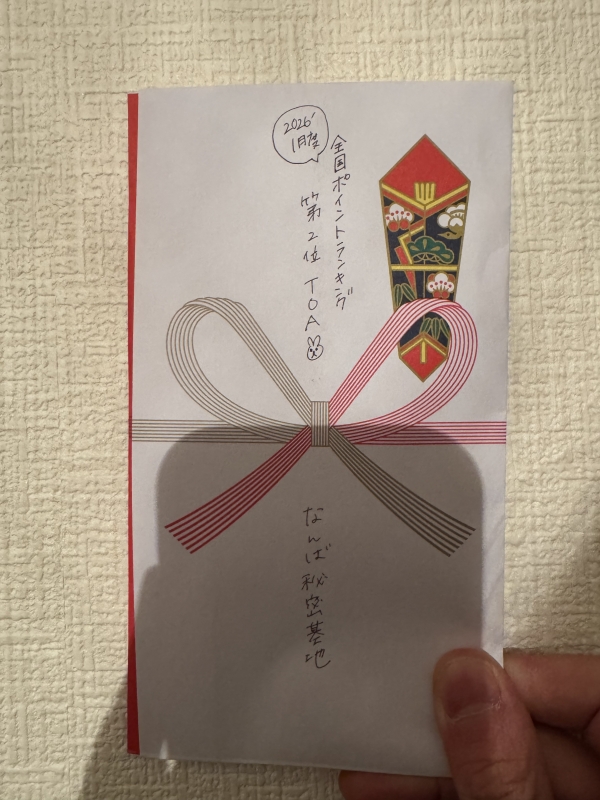 2026'
1月度
全国ポイントランキング
第2位 TOA
なんば秘密基地